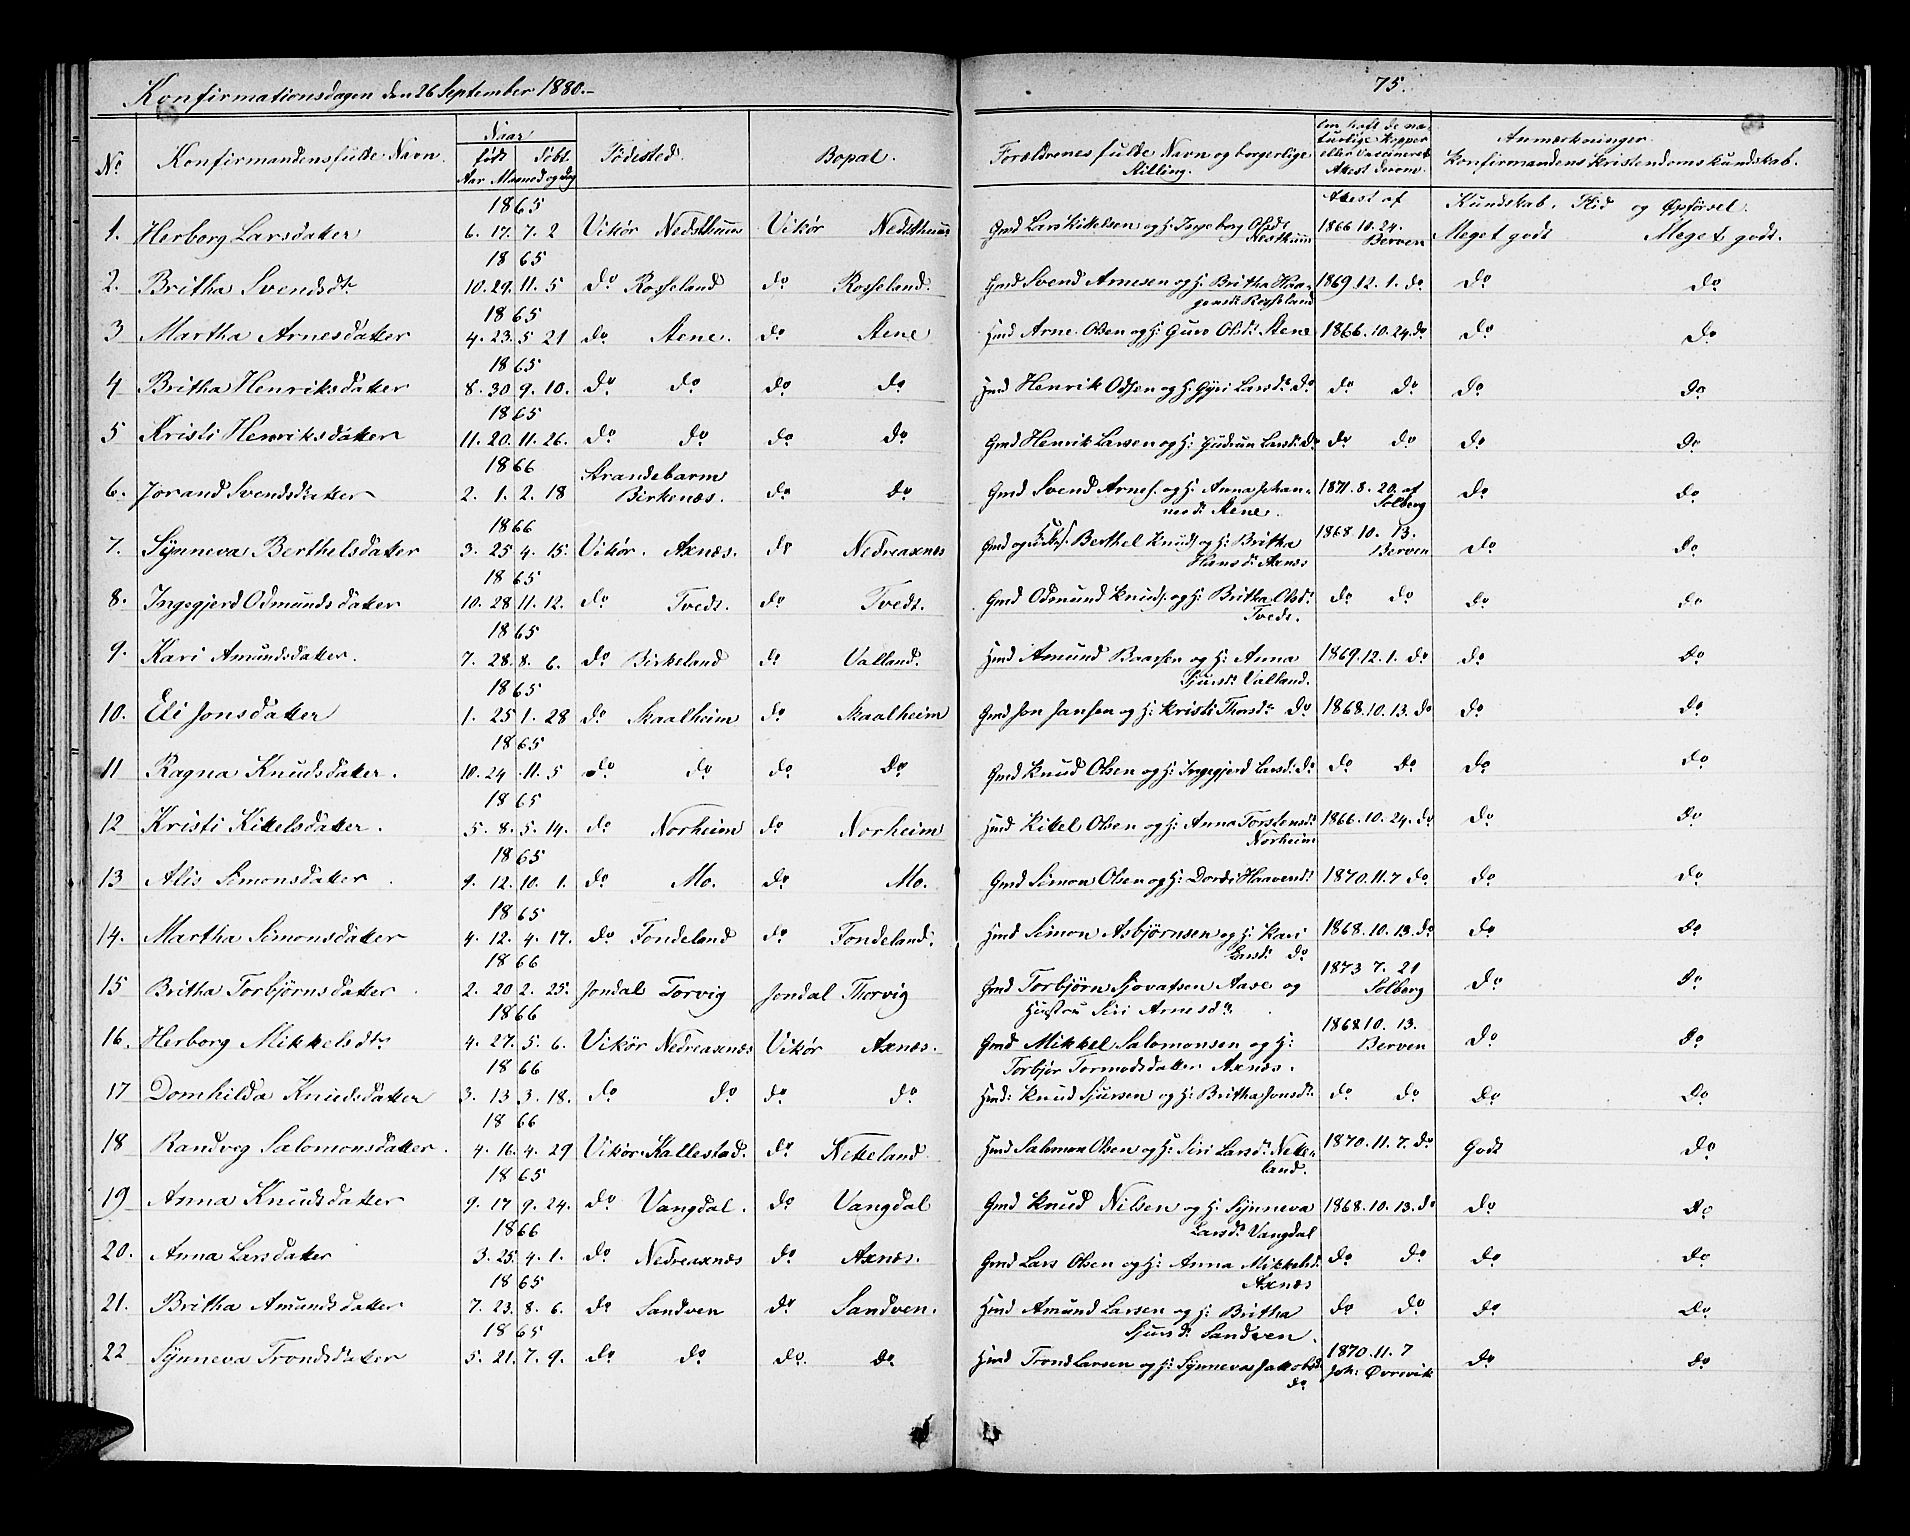 Konfirmationsdagen den 26 September 1880.-
75.
No Konfirmandens fulde Navn. Naar født Døbt Aar Maaned og Dag Fødested. Bopæl. Forældrenes fulde Navn og borgerlige Stilling. Om haft de naturlige Kopper eller Vaccineret Attest derom. Anmerkninger Konfirmandens Kristendomskundskab.
Attest af Kundskab, Flid og Opførsel.
1865
1. Herborg Larsdatter 6. 17. 7. 2 Vikør Vikør Gmd Lars Kittelsen og H: Ingeborg Olsdt 1866 10. 24. Berven Meget godt Meget godt.
1865
2. Britha Svendsdt. 10. 29. 11. 5 do Rosseland do Rosseland. Gmd Svend Arnesen og H: Britha Haagensdt Rosseland 1869. 12. 1. do do do
1865
3 Martha Arnesdatter 4. 23. 5 21 do Stene. do Stene Hmd Arne Olsen og H: Guro Olsdt Stene 1866. 10. 24. do do do
1865
4 Britha Henriksdatter 8. 30 9. 10. do do do do Hmd Henrik Odsen og H: Gyri Larsdt do do do do do
1865
5 Kristi Henriksdatter 11. 20. 11. 26. do do do do Gmd Henrik Larsen og H: Gudrun Larsdt do do do do do
1866
6. Jorand Svendsdatter 2. 1. 2. 18 Strandebarm Birkenæs. do do Gmd Svend Arnes. og H: Anna Johannesdt Stene. 1871. 8. 20. af Solberg do do
1866
7. Synneva Berthelsdatter 3. 25 4. 15. Vikør. Axnæs. do Nedreaxnæs Gmd og Berthel Knuds. og H: Britha Hansdt Axnæs 1868. 10. 13. Berven do do
1865
8. Ingegjerd Odmundsdatter 10. 28 11. 12. do Tvedt. do Tvedt. Gmd Odmund Knuds. og H: Britha Olsdt Tvedt. do do do do
1865
9. Kari Amundsdatter. 7. 28. 8. 6. do Birkeland do Valland. Hmd Amund Baarsen og H: Anna Sjursdt Valland. 1869. 12. 1. do do do
1865
10. Eli Jonsdatter 1. 25 1. 28 do Skaalheim do Skaalheim Gmd Jon Jansen og H: Kristi Thorsdt do 1868. 10. 13. do do do
1865
11 Ragna Knudsdatter. 10. 24 11. 5 do do do do Gmd Knud Olsen og H: Ingegjerd Larsd. do do do do do
1865
12 Kristi Kittelsdatter. 5. 8. 5. 14. do Norheim do Norheim Hmd Kittel Olsen og H: Anna Torstensdt Norheim 1866. 10. 24. do do do
1865
13 Alis Simonsdatter 9. 12. 10. 1. do Mo. do Mo. Gmd Simon Olsen og H: Dordi Haaversdt 1870. 11. 7 do do do
1865
14. Martha Simonsdatter 4. 12. 4. 17. do Tondeland do Tondeland. Hmd Simon Asbjørnsen og H: Kari Larsdt do 1868. 10. 13. do do do
1866
15 Britha Torbjørnsdatter 2. 20 2. 25. Jondal Torvig Jondal Thorvig Gmd Torbjørn Sjovatsen Aase og Hustru Siri Arnesdt. 1873 7. 21 Solberg do do
1866
16. Herborg Mikkelsdt. 4. 27. 5. 6. Vikør Nedreaxnæs Vikør Axnæs. Gmd Mikkel Salomonsen og H: Torbjør Tormodsdatter Axnæs. 1868 10. 13. Berven do do
1866
17 Domhilda Knudsdatter 3. 13 3. 18. do do do do Hmd: Knud Sjursen og H: Britha Jonsdt do do do do
1866
18 Randveg Salomonsdatter. 4. 16. 4. 29 Vikør Kallestad. do Netteland Hmd Salomon Olsen og H: Siri Larsdt Netteland. 1870. 11. 7. do Godt do
1865
19 Anna Knudsdatter 9. 17 9. 24. do Vangdal. do Vangdal Gmd Knud Nilsen og H: Synneva Larsdt Vangdal 1868. 10. 13. do do do
1866
20. Anna Larsdatter 3. 25. 4. 1. do Nedreaxnæs do Axnæs. Gmd Lars Olsen og H: Anna Mikkelsdt Axnæs do do do do
1865
21. Britha Amundsdatter 7. 23. 8. 6. do Sandven do Sandven. Hmd Amund Larsen og H: Britha Sjursdt Sandven. do do do do
1865
22 Synneva Trondsdatter 5. 21. 7. 9. do do do. do Hmd Trond Larsen og H: Synneva Jakobsdt do 1870. 11. 7 Joh: Øvrevik do do